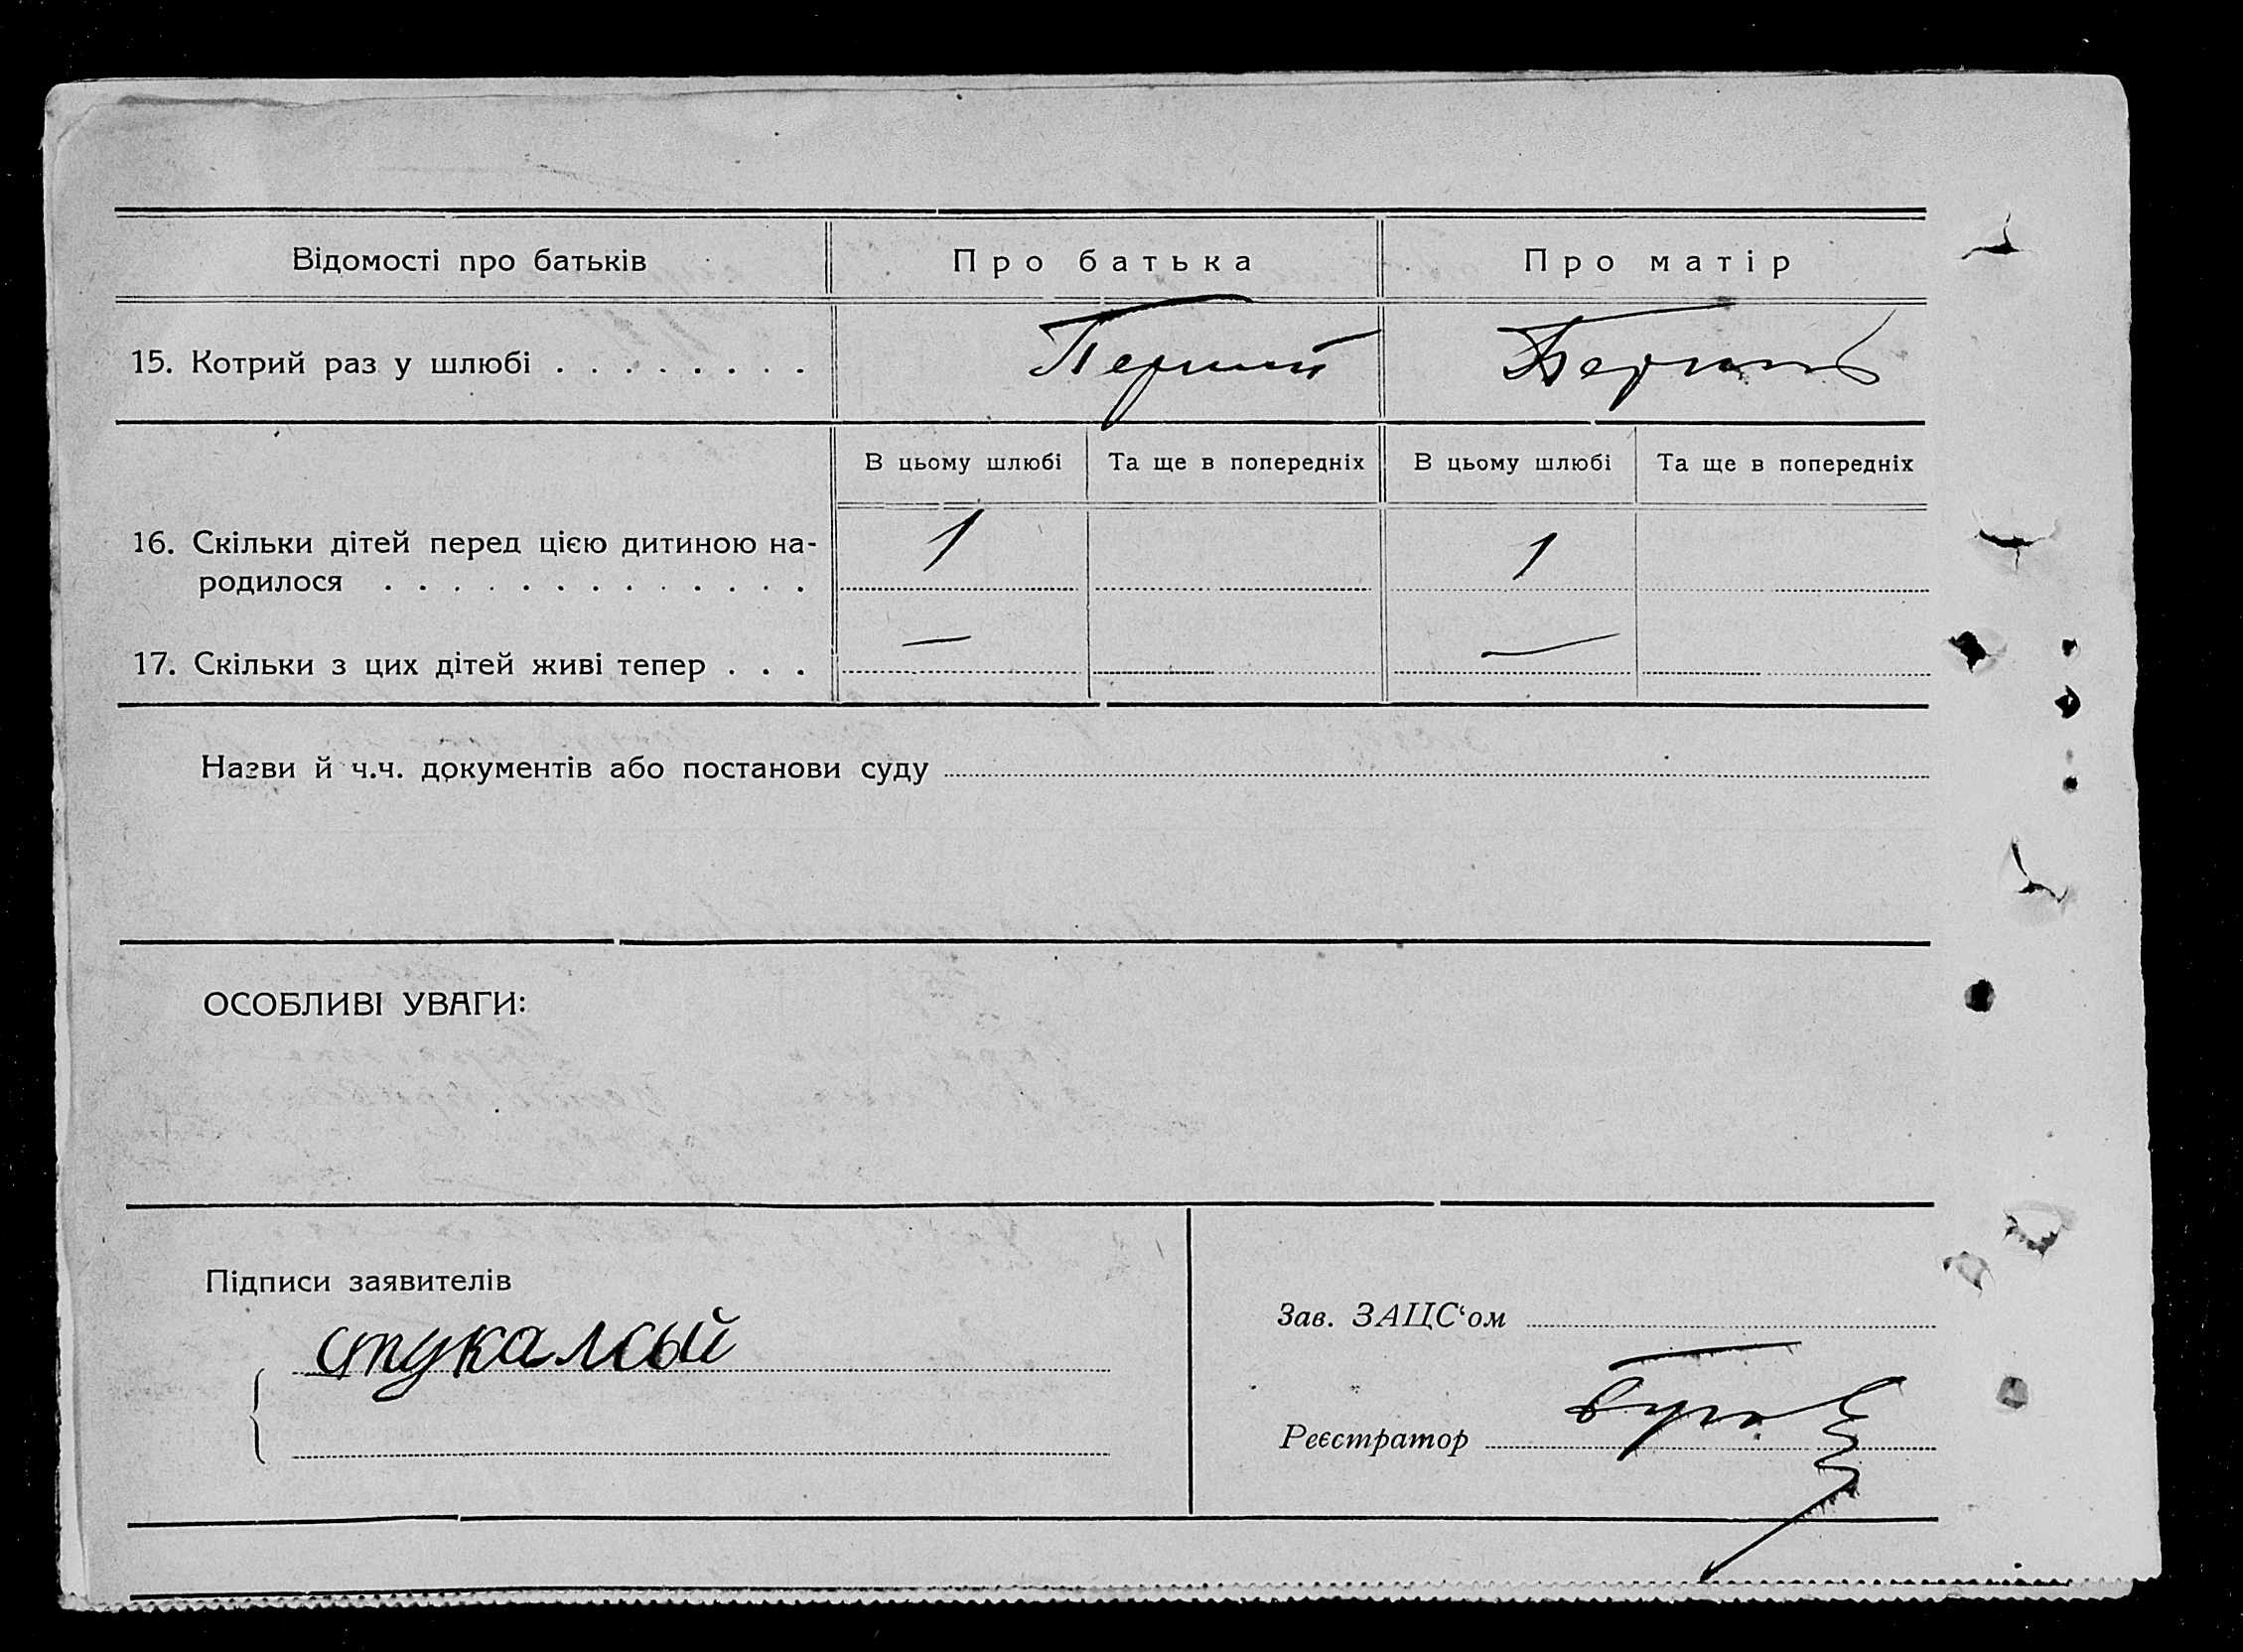 Відомості про батьків Про батька Про матір
15. Котрий раз у шлюбі . . . . . . . . Перший Перший
В цьому шлюбі Та ще в попередніх В цьому шлюбі Та ще в попередніх
16. Скільки дітей перед цією дитиною на- 1 1
родилося . . . . . . . . . . . . .
17. Скільки з цих дітей живі тепер . . . — —
Назви й ч.ч. документів або постанови суду
ОСОБЛИВІ УВАГИ:
Підписи заявителів
Зав. ЗАЦС‘ом
Реєстратор